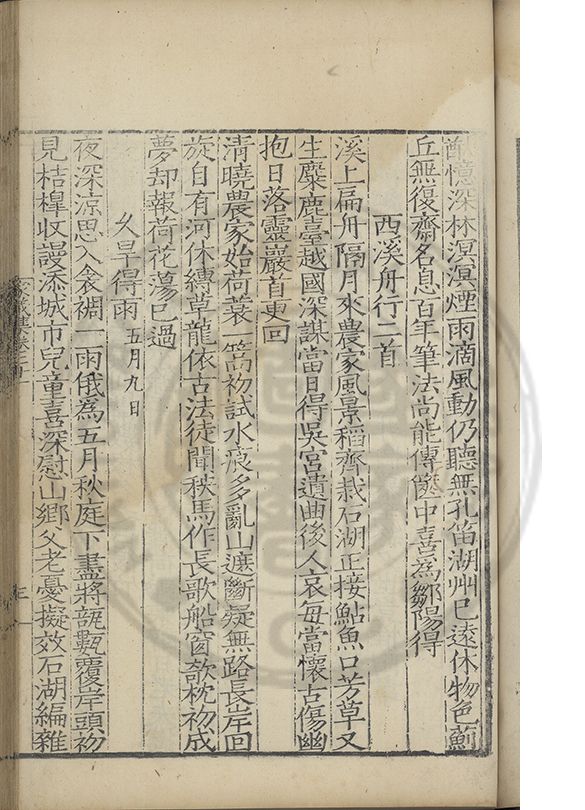 酣憶深林溟溟煙雨滴風動仍聽無孔笛湖州已遠休物色薊
丘無復齋名息百年筆法尚能傳篋中喜為鄒陽得
西溪舟行二首
溪上扁舟隔月來農家風景稻齊栽石湖正接鮎魚口芳草又
生麋鹿臺越國深謀當日得吳宮遺曲後人哀每當懷古傷幽
抱日落靈巖首重回
清曉農家始荷蓑一篙初試水痕多亂山遮斷疑無路長岸回
旋自有河休縛草龍依古法徒聞秧馬作長歌船窗欹枕初成
夢却報荷花蕩已過
久旱得雨五月九日
夜深涼思入衾裯一雨俄為五月秋庭下盡將瓿甊覆岸頭初
見桔橰收謾添城市兒童喜深慰山鄉父老憂擬效石湖編雜